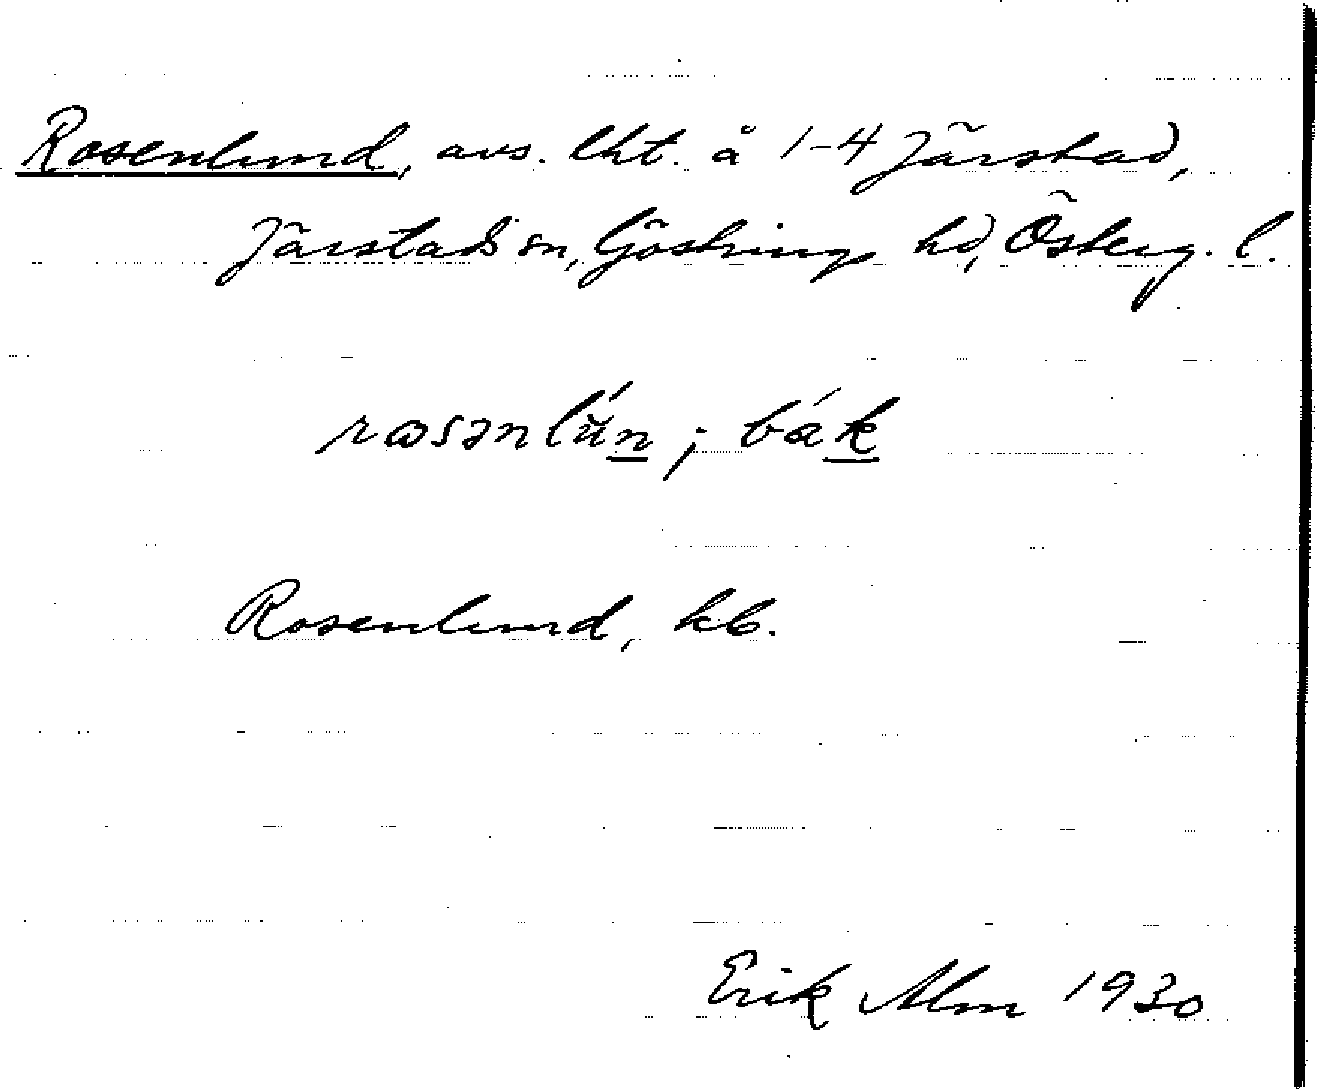 Rosenlund, avs. lht. å 1-4 Järstad,
Järstads sn, Göstring hd, Österg. l.
rɷsənlú̆n; bák
Rosenlund, kb.
Erik Alm 1930